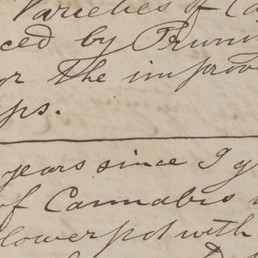 Varieties of Ca
ced by Prunin
or the improv
ps.
years since I g
of Cannabis
lower pot with